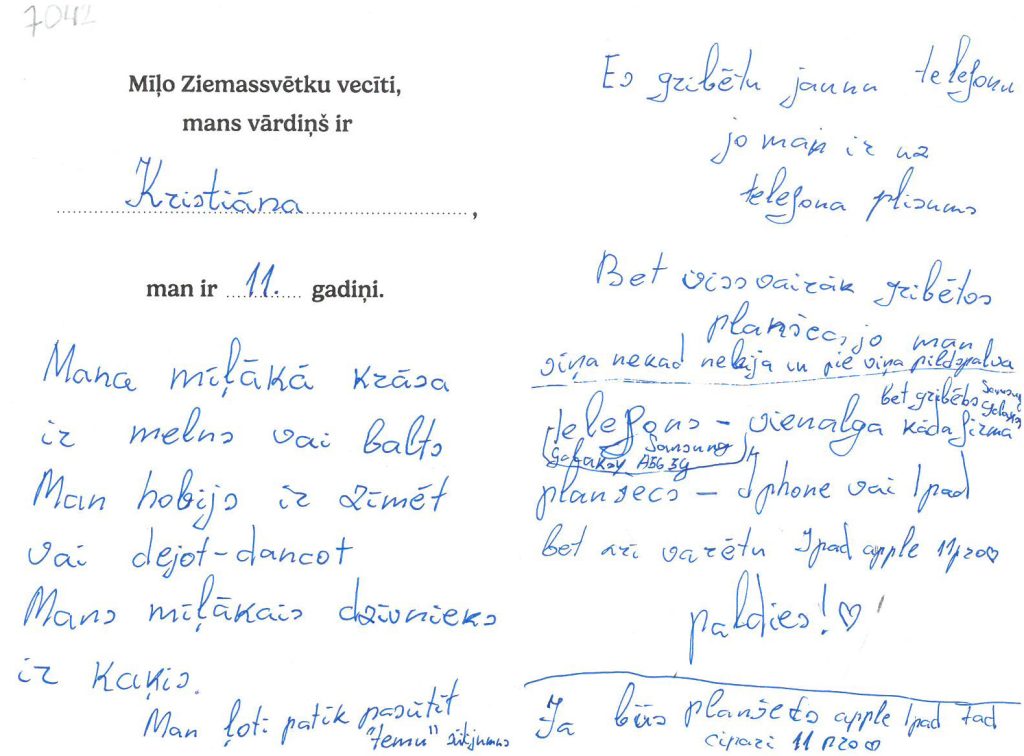 7042
Mīļo Ziemassvētku vecīti,
mans vārdiņš ir
Kristiāna,
man ir 11. gadiņi.
Mana mīļākā krāsa
ir melns vai balts
Man hobijs ir zīmēt
vai dejot-dancot
Mans mīļākais dzīvnieks
ir kaķis.
Man ļoti patīk pasūtīt
"temu" sūtījumus
Es gribētu jaunu telefonu
jo man ir uz
telefona plisums
Bet vissvairāk gribētos
planšec, jo man
viņa nekad nebija un pie viņa pildspalva
telefons – vienalga kāda firma
bet gribētos Samsung Galaxy
Samsung
Galaksy A56 5g
plansecs – Iphone vai Ipad
bet arī varētu Ipad apple 11 pro♡
paldies! ♡
Ja būs planšets apple Ipad tad
cipari 11 pro♡